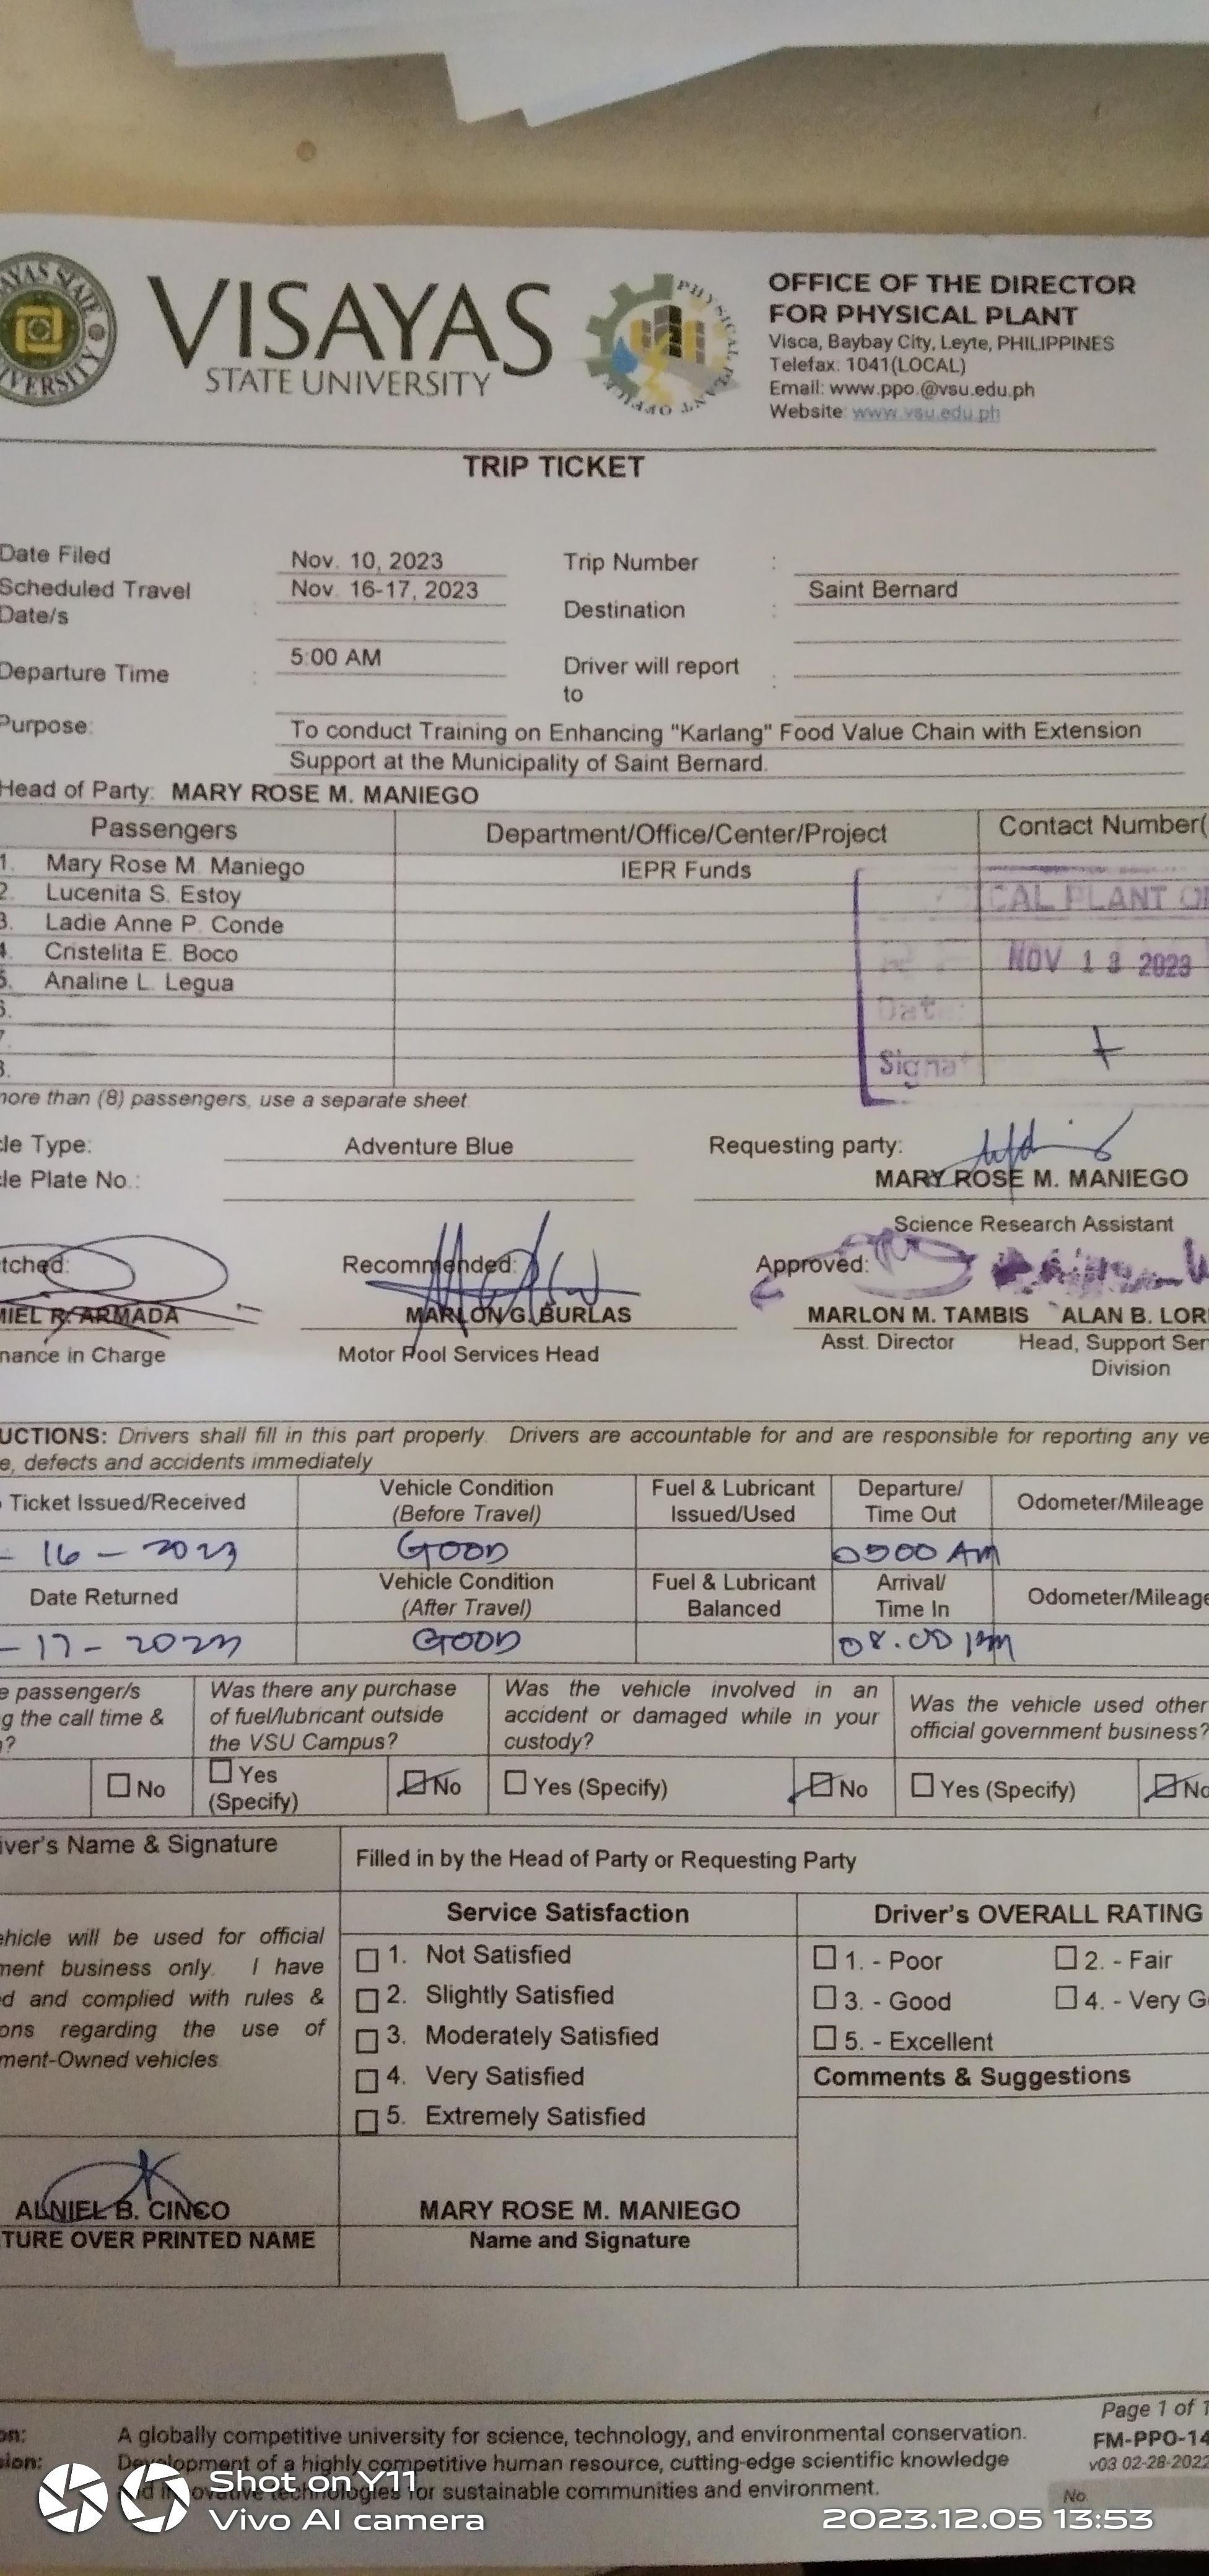 VISAYAS
STATE UNIVERSITY
PHYSICAL PLANT OFFICE
OFFICE OF THE DIRECTOR
FOR PHYSICAL PLANT
Visca, Baybay City, Leyte, PHILIPPINES
Telefax: 1041(LOCAL)
Email: www.ppo.@vsu.edu.ph
Website: www.vsu.edu.ph
TRIP TICKET
Date Filed Nov. 10, 2023 Trip Number :
Scheduled Travel Date/s : Nov. 16-17, 2023 Destination : Saint Bernard
Departure Time : 5:00 AM Driver will report to :
Purpose: To conduct Training on Enhancing "Karlang" Food Value Chain with Extension
Support at the Municipality of Saint Bernard.
Head of Party: MARY ROSE M. MANIEGO
Passengers Department/Office/Center/Project Contact Number(
1. Mary Rose M. Maniego IEPR Funds
2. Lucenita S. Estoy
3. Ladie Anne P. Conde
4. Cristelita E. Boco
5. Analine L. Legua
6.
7.
8.
CAL PLANT O
NOV 13 2023
Dat
Signa
more than (8) passengers, use a separate sheet
cle Type: Adventure Blue Requesting party:
cle Plate No.: MARY ROSE M. MANIEGO
Science Research Assistant
tched: Recommended: Approved:
MIEL R. ARMADA MARLON G. BURLAS MARLON M. TAMBIS ALAN B. LOR
nance in Charge Motor Pool Services Head Asst. Director Head, Support Ser
Division
UCTIONS: Drivers shall fill in this part properly. Drivers are accountable for and are responsible for reporting any ve
e, defects and accidents immediately
Ticket Issued/Received Vehicle Condition (Before Travel) Fuel & Lubricant Issued/Used Departure/ Time Out Odometer/Mileage
- 16 - 2023 GOOD 0500 AM
Date Returned Vehicle Condition (After Travel) Fuel & Lubricant Balanced Arrival/ Time In Odometer/Mileage
- 17 - 2023 GOOD 08.00 PM
e passenger/s
g the call time &
?
Was there any purchase
of fuel/lubricant outside
the VSU Campus?
Was the vehicle involved in an
accident or damaged while in your
custody?
Was the vehicle used other
official government business?
No Yes (Specify) No Yes (Specify) No Yes (Specify) No
iver's Name & Signature Filled in by the Head of Party or Requesting Party
ehicle will be used for official
ment business only. I have
d and complied with rules &
ons regarding the use of
ment-Owned vehicles.
Service Satisfaction
1. Not Satisfied
2. Slightly Satisfied
3. Moderately Satisfied
4. Very Satisfied
5. Extremely Satisfied
Driver's OVERALL RATING
1. - Poor 2. - Fair
3. - Good 4. - Very G
5. - Excellent
Comments & Suggestions
ALNIEL B. CINCO MARY ROSE M. MANIEGO
TURE OVER PRINTED NAME Name and Signature
Page 1 of 1
FM-PPO-14
v03 02-28-2022
No.
on: A globally competitive university for science, technology, and environmental conservation.
sion: Development of a highly competitive human resource, cutting-edge scientific knowledge
and innovative technologies for sustainable communities and environment.
Shot on Y11
Vivo AI camera
2023.12.05 13:53